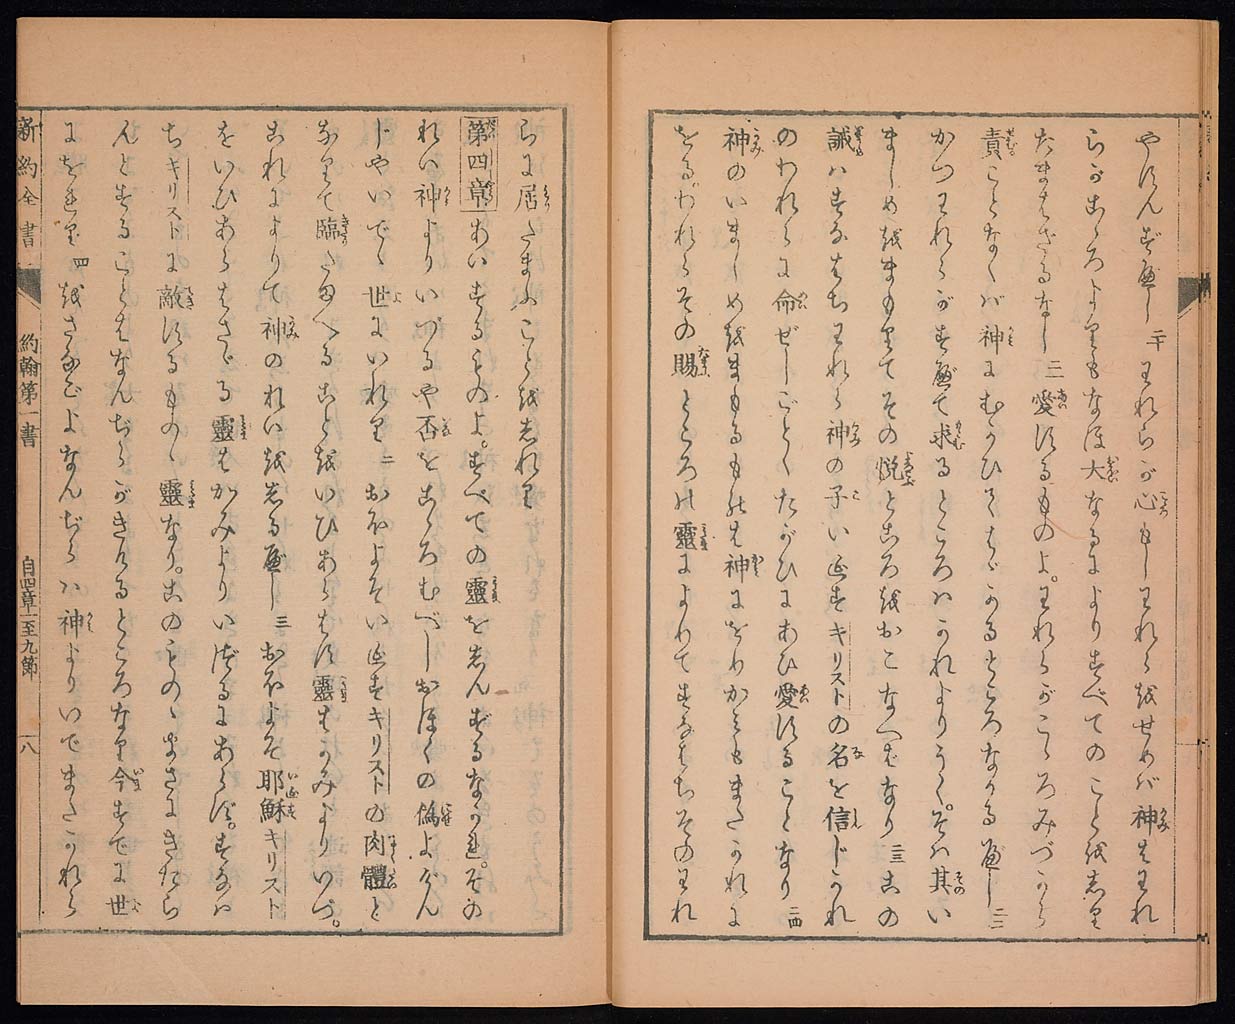 やすんずべし 二十 われらが心もしわれらをせめバ神はわれ
らがこゝろよりもなほ大なるによりすべてのことをしり
たまはざるなし 二一 愛するものよ。われらがこゝろみづから
責ことなくバ神にむかひてはゞかるところなかるべし 二二
かつわれらがすべて求るところハかれよりうく。そハ其い
ましめをまもりてその悦ところをおこなへばなり 二三 この
誡ハすなはちわれら神の子いゑすキリストの名を信じかれ
のわれらに命ぜしごとくたがひにあひ愛することなり 二四
神のいましめをまもるものは神にをりかみもまたかれに
をるわれらその賜ところの靈によりてすなはちそのわれ
らに居たまふことをしれり
第四章 あいするものよ。すべての靈をしんずるなかれ。その
れい神よりいづるや否をこゝろむべしおほくの僞よげん
じやいでゝ世にいれり 二 おほよそいゑすキリストの肉體と
なりて臨たまへることをいひあらはす靈はかみよりいづ。
これによりて神のれいをしるべし 三 おほよそ耶穌キリスト
をいひあらはさゞる靈はかみよりいづるにあらず。すなハ
ちキリストに敵するものゝ靈なり。このものゝまさにきたら
んとすることはなんぢらがきけるところなり今すでに世
にをれり 四 をさなごよなんぢらハ神よりいでまたかれら
新約全書 約翰第一書 自四章一至九節 一八